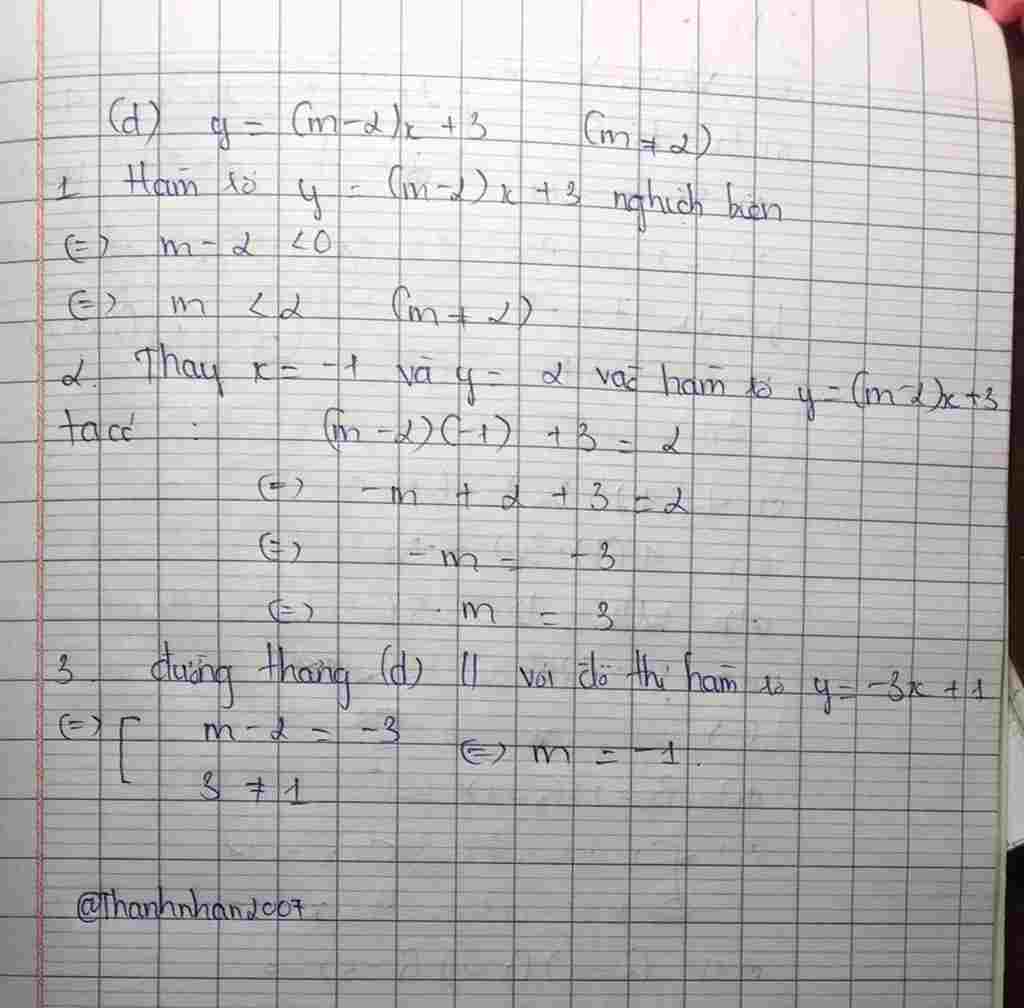 (d) y = (m-2)x + 3 (m ≠ 2)
1 Hàm số y = (m-2)x + 3 nghịch biến
(=) m - 2 < 0
(=) m < 2 (m ≠ 2)
2. Thay x = -1 và y = 2 vào hàm số y = (m-2)x+3
ta có : (m-2)(-1) + 3 = 2
(=) -m + 2 + 3 = 2
(=) -m = -3
(=) m = 3
3 đường thẳng (d) // với đồ thị hàm số y = -3x + 1
(=) [ m - 2 = -3 (=) m = -1.
3 ≠ 1
@Thanhnhan2007